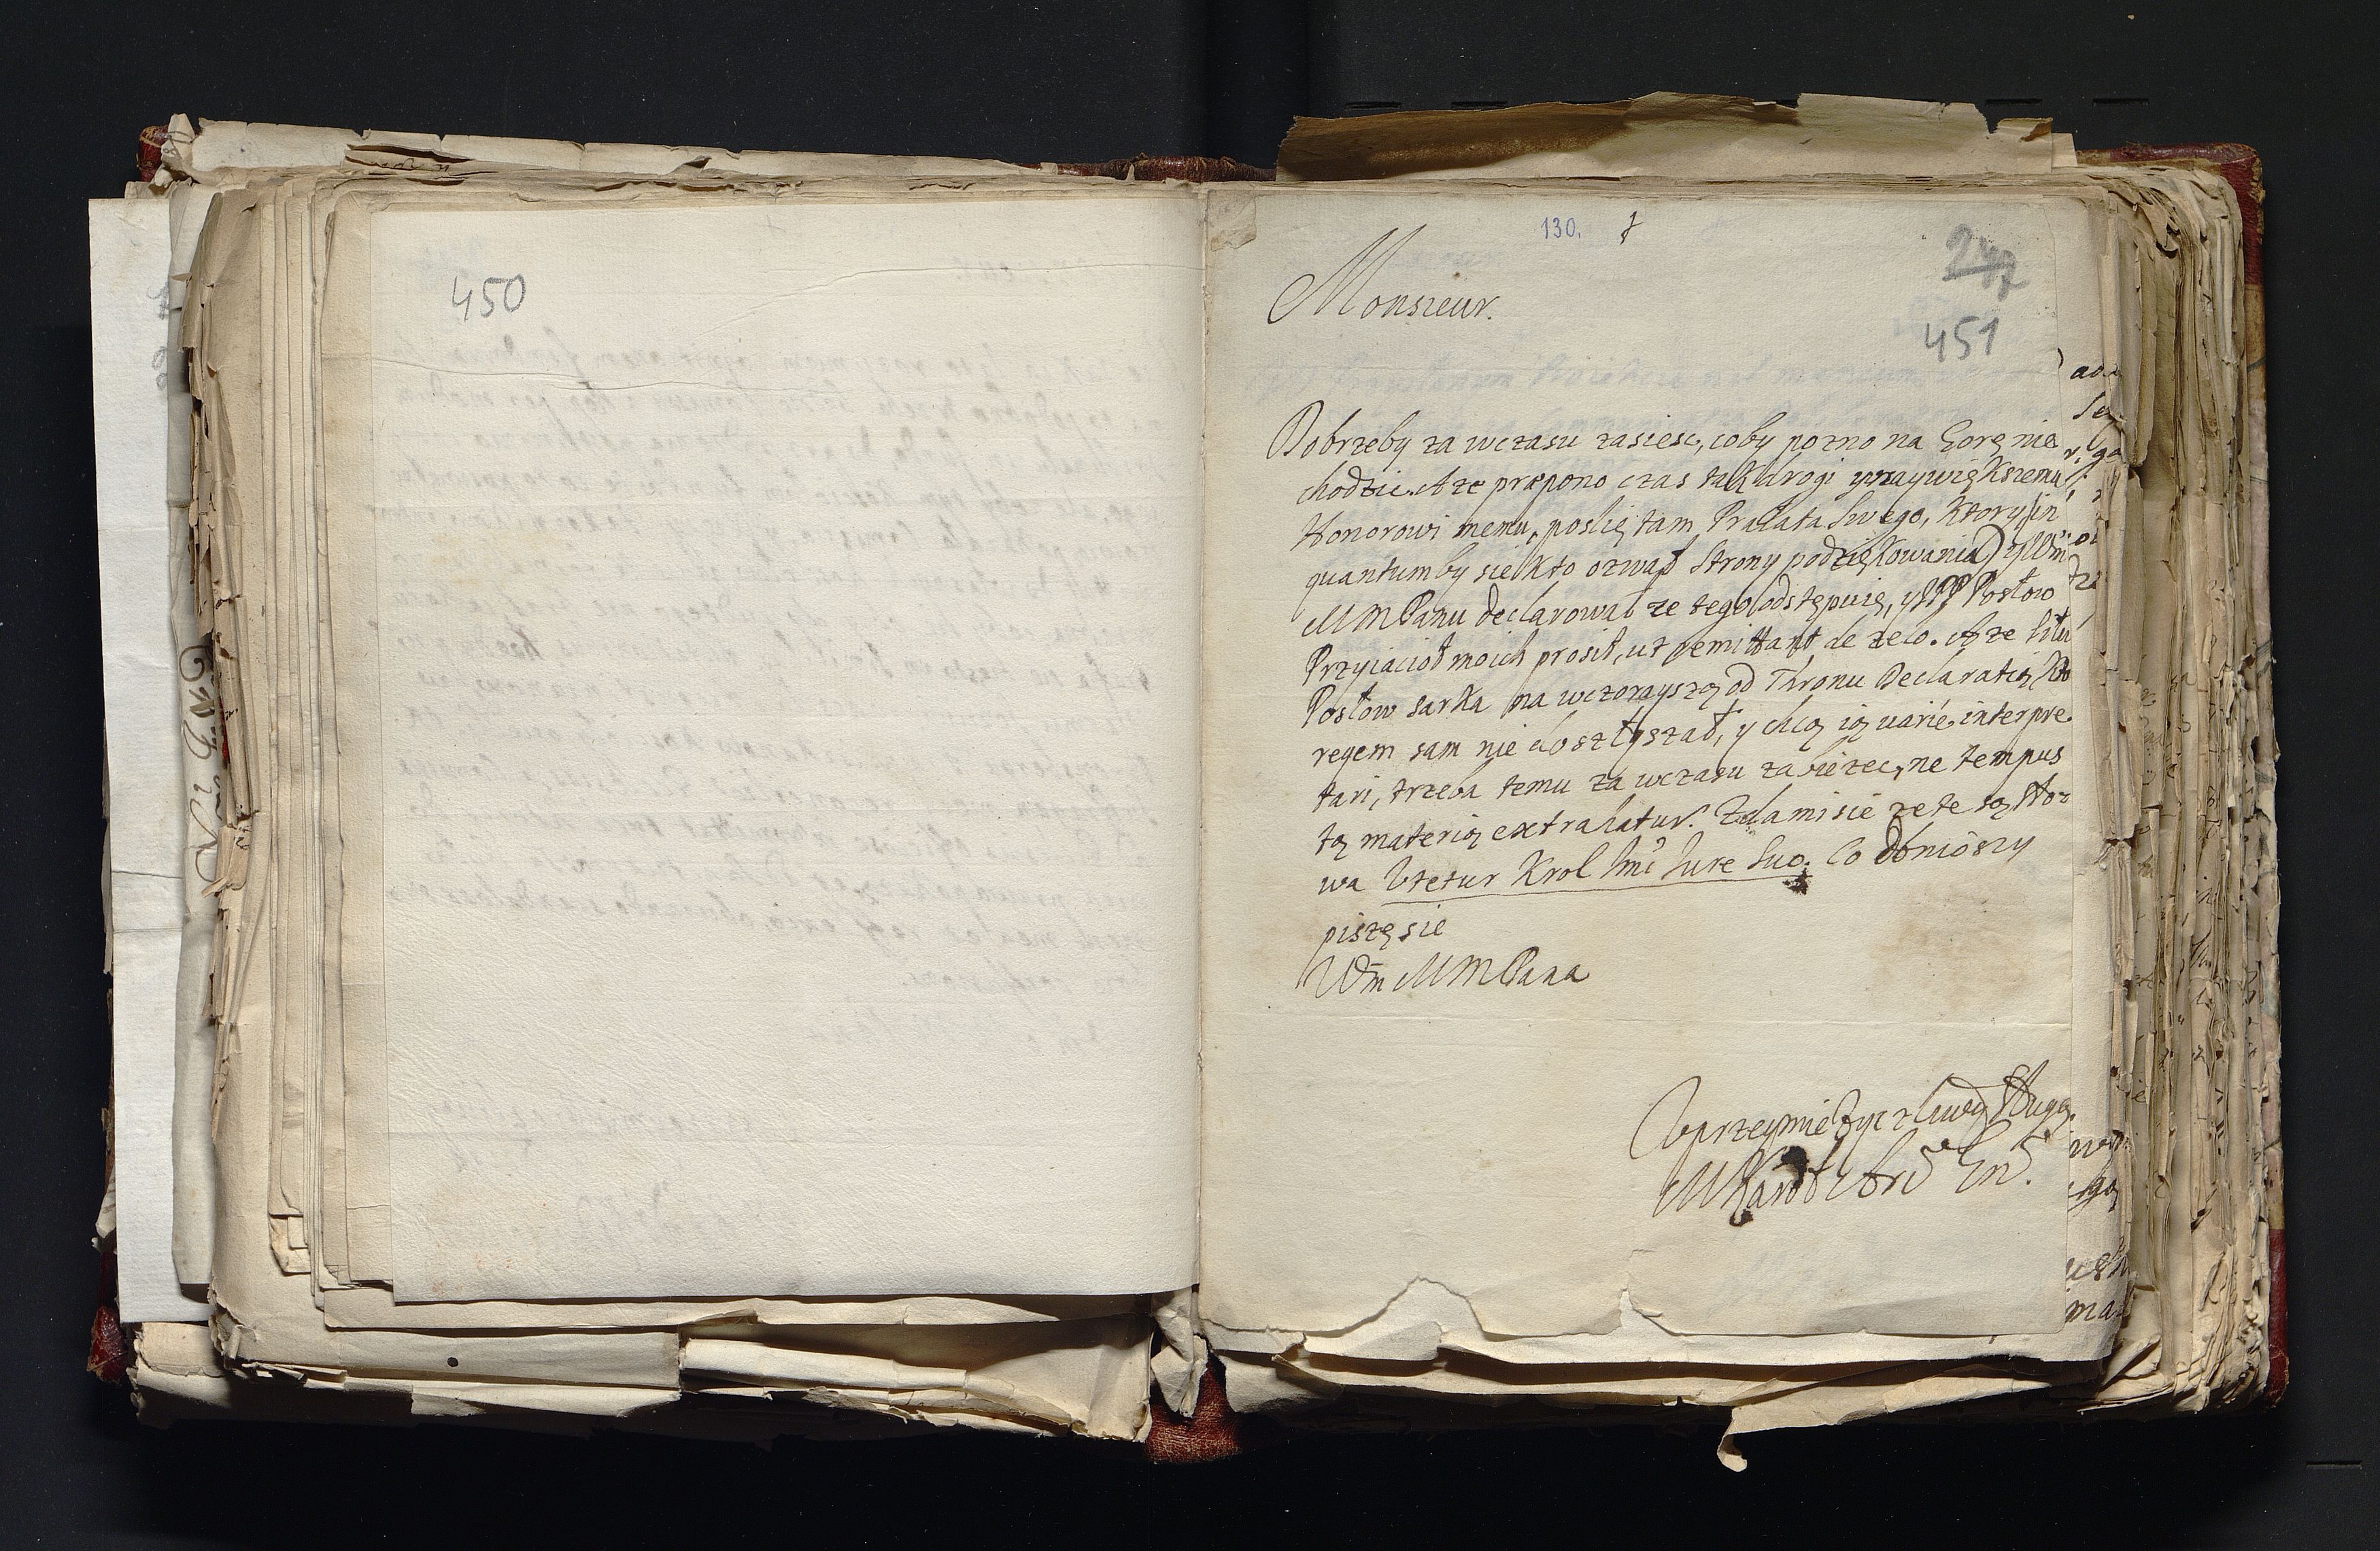 450
130.
242
451
Monsieur.
Dobrzeby za wczasu zasiesc, coby pozno na Gorę nie
chodzic. A ze przpono czas tak drogi y naywiększemu
Honorowi memu, poslię tam Pralata swego, ktory in
quantumby sie kto ozwał strony podziękowania y Wm
MMPanu declarował ze tego odstępuię, y PP Posłow
Przyiacioł moich prosił, ut remittant de zelo. A ze siła
Posłow sarka na wczorayszą od Thronu Declaratią,
regem sam nie dosztyszał, y chcą ią varié interpre-
tari, trzeba temu za wczasu zabieżec, ne tempus
tą materią extrahatur. Zda mi sie ze te są sło-
wa Vtetur Krol Imć Jure suo. Co doniosszy
piszę sie
Wm MMPana
Vprzeymie życzliwy Sługą
MKard